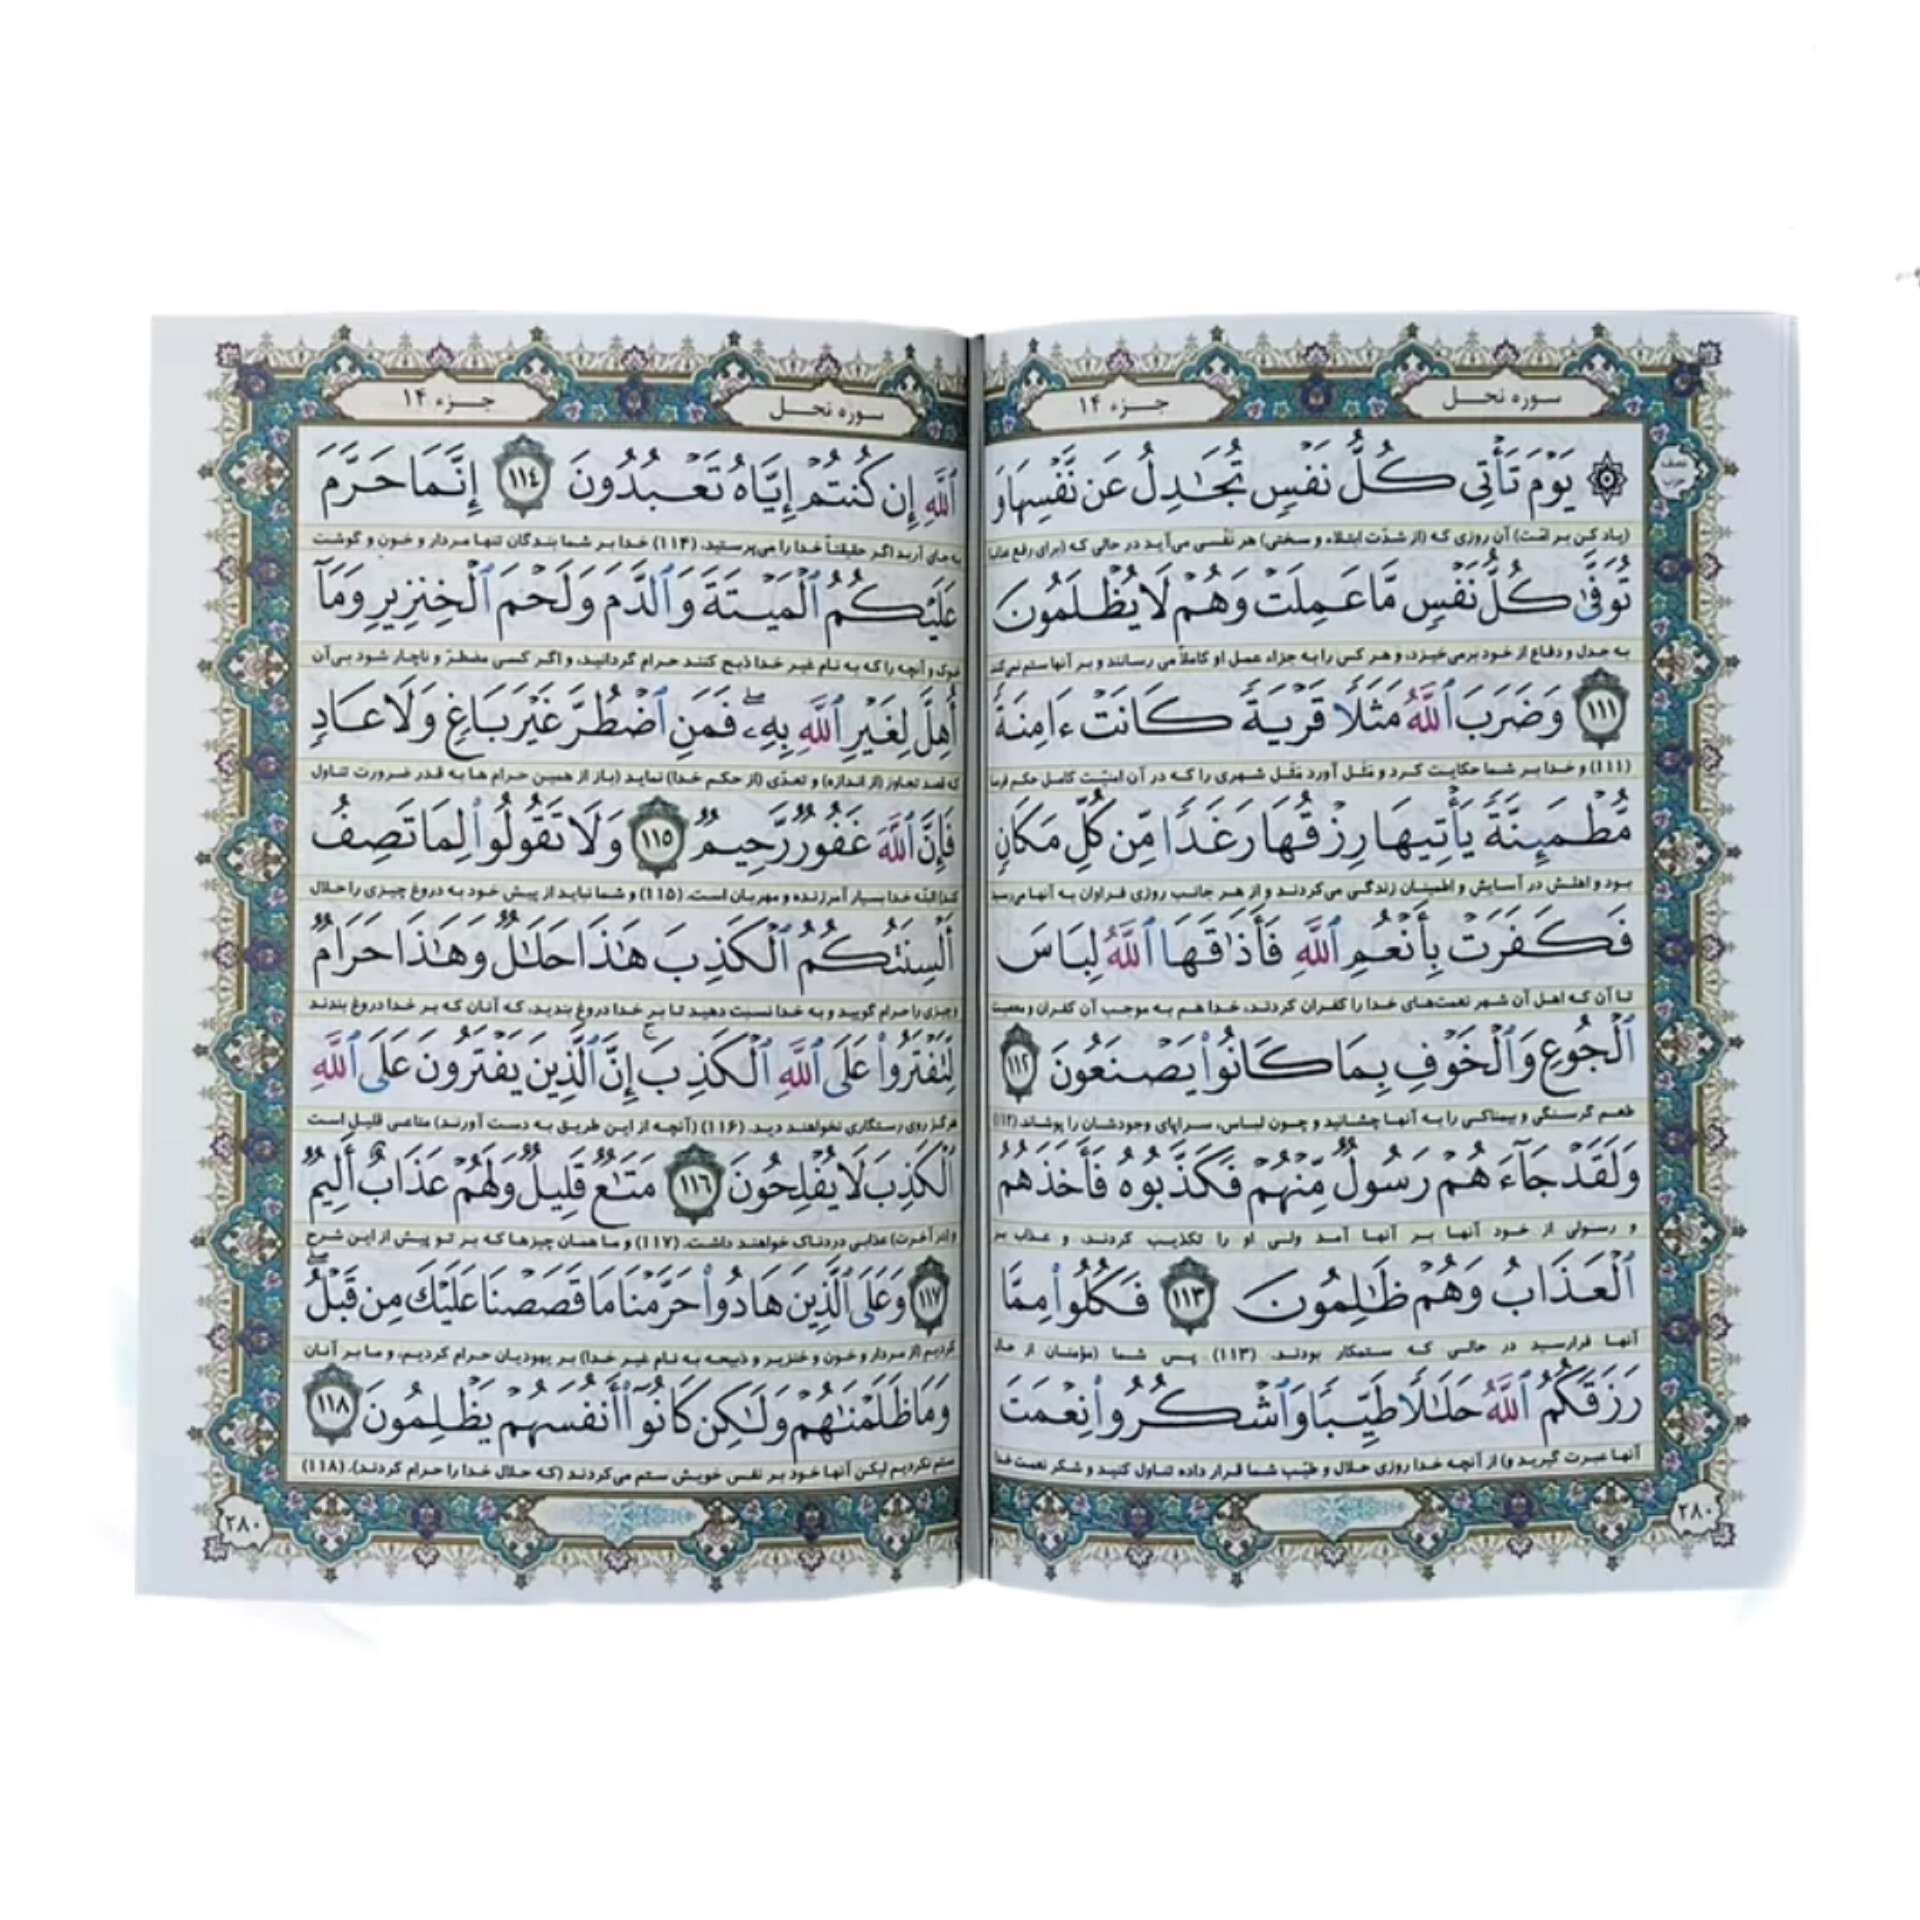 سوره نحل
جزء ۱۴
نصف حزب
۞ يَوْمَ تَأْتِي كُلُّ نَفْسٍ تُجَٰدِلُ عَن نَّفْسِهَا وَ
(یاد کن بر امّت) آن روزی که (از شدّت ابتلاء و سختی) هر نفْسی می‌آید در حالی که (برای رفع عذاب)
تُوَفَّىٰ كُلُّ نَفْسٍ مَّا عَمِلَتْ وَهُمْ لَا يُظْلَمُونَ
به جدل و دفاع از خود برمی‌خیزد، و هر کس را به جزاء عمل او کاملاً می رسانند و بر آنها ستم نمی‌کند
﴿١١١﴾ وَضَرَبَ ٱللَّهُ مَثَلًا قَرْيَةً كَانَتْ ءَامِنَةً
(۱۱۱) و خدا بر شما حکایت کرد و مَثَل آورد مَثَل شهری را که در آن امنیّت کامل حکم فرما
مُّطْمَئِنَّةً يَأْتِيهَا رِزْقُهَا رَغَدًا مِّن كُلِّ مَكَانٍ
بود و اهلش در آسایش و اطمینان زندگی می‌کردند و از هر جانب روزی فراوان به آنها می‌رسید
فَكَفَرَتْ بِأَنْعُمِ ٱللَّهِ فَأَذَٰقَهَا ٱللَّهُ لِبَاسَ
تا آن که اهل آن شهر نعمت‌های خدا را کفران کردند، خدا هم به موجب آن کفران و معصیت
ٱلْجُوعِ وَٱلْخَوْفِ بِمَا كَانُوا۟ يَصْنَعُونَ ﴿١١٢﴾
طعم گرسنگی و بیمناکی را به آنها چشانید و چون لباس، سراپای وجودشان را پوشاند (۱۱۲)
وَلَقَدْ جَآءَهُمْ رَسُولٌ مِّنْهُمْ فَكَذَّبُوهُ فَأَخَذَهُمُ
و رسولی از خود آنها بر آنها آمد ولی او را تکذیب کردند، و عذاب بر
ٱلْعَذَابُ وَهُمْ ظَٰلِمُونَ ﴿١١٣﴾ فَكُلُوا۟ مِمَّا
آنها فرارسید در حالی که ستمکار بودند. (۱۱۳) پس شما (مؤمنان از حال
رَزَقَكُمُ ٱللَّهُ حَلَٰلًا طَيِّبًا وَٱشْكُرُوا۟ نِعْمَتَ
آنها عبرت گیرید و) از آنچه خدا روزی حلال و طیّب شما قرار داده تناول کنید و شکر نعمت خدا
۲۸۰
سوره نحل
جزء ۱۴
ٱللَّهِ إِن كُنتُمْ إِيَّاهُ تَعْبُدُونَ ﴿١١٤﴾ إِنَّمَا حَرَّمَ
به جای آرید اگر حقیقتاً خدا را می‌پرستید. (۱۱۴) خدا بر شما بندگان تنها مردار و خون و گوشت
عَلَيْكُمُ ٱلْمَيْتَةَ وَٱلدَّمَ وَلَحْمَ ٱلْخِنزِيرِ وَمَآ
خوک و آنچه را که به نام غیر خدا ذبح کنند حرام گردانید، و اگر کسی مضطرّ و ناچار شود بی‌آن
أُهِلَّ لِغَيْرِ ٱللَّهِ بِهِۦ ۖ فَمَنِ ٱضْطُرَّ غَيْرَ بَاغٍ وَلَا عَادٍ
که قصد تجاوز (از اندازه) و تعدّی (از حکم خدا) نماید (باز از همین حرام ها به قدر ضرورت تناول
فَإِنَّ ٱللَّهَ غَفُورٌ رَّحِيمٌ ﴿١١٥﴾ وَلَا تَقُولُوا۟ لِمَا تَصِفُ
کند) البتّه خدا بسیار آمرزنده و مهربان است. (۱۱۵) و شما نباید از پیش خود به دروغ چیزی را حلال
أَلْسِنَتُكُمُ ٱلْكَذِبَ هَٰذَا حَلَٰلٌ وَهَٰذَا حَرَامٌ
و چیزی را حرام گویید و به خدا نسبت دهید تا بر خدا دروغ بندید، که آنان که بر خدا دروغ بندند
لِّتَفْتَرُوا۟ عَلَى ٱللَّهِ ٱلْكَذِبَ ۚ إِنَّ ٱلَّذِينَ يَفْتَرُونَ عَلَى ٱللَّهِ
هرگز روی رستگاری نخواهند دید. (۱۱۶) (آنچه از این طریق به دست آورند) متاعی قلیل است
ٱلْكَذِبَ لَا يُفْلِحُونَ ﴿١١٦﴾ مَتَٰعٌ قَلِيلٌ وَلَهُمْ عَذَابٌ أَلِيمٌ
و (در آخرت) عذابی دردناک خواهند داشت. (۱۱۷) و ما همان چیزها که بر تو پیش از این شرح
﴿١١٧﴾ وَعَلَى ٱلَّذِينَ هَادُوا۟ حَرَّمْنَا مَا قَصَصْنَا عَلَيْكَ مِن قَبْلُ ۖ
کردیم (از مردار و خون و خنزیر و ذبیحه به نام غیر خدا) بر یهودیان حرام کردیم، و ما بر آنان
وَمَا ظَلَمْنَٰهُمْ وَلَٰكِن كَانُوٓا۟ أَنفُسَهُمْ يَظْلِمُونَ ﴿١١٨﴾
ستم نکردیم لیکن آنها خود بر نفس خویش ستم می‌کردند (که حلال خدا را حرام کردند). (۱۱۸)
۲۸۰